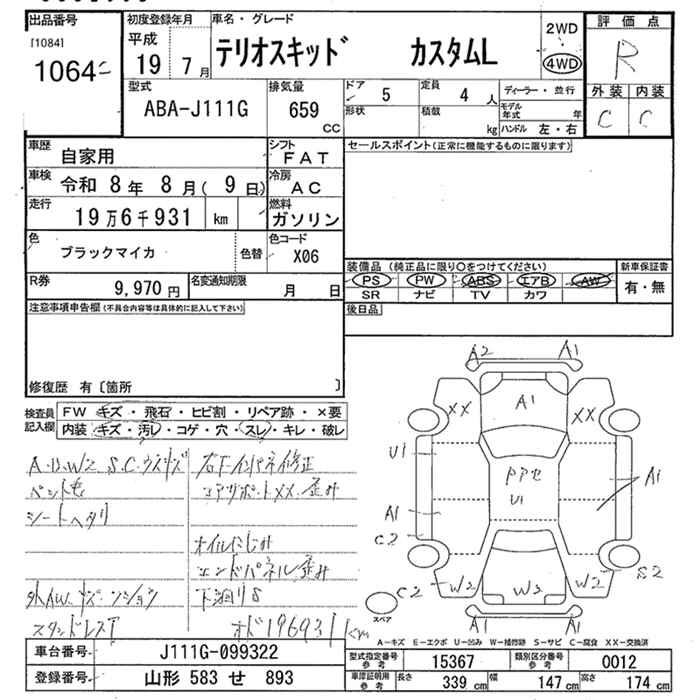 出品番号
[1084]
1064
初度登録年月
平成
19 7月
車名・グレード
テリオスキッド カスタムL
2WD
4WD
評価点
R
外装 内装
C C
型式
ABA-J111G
排気量
659
CC
ドア 5
定員 4人
形状
積載 kg
ディーラー・並行
モデル年式 年
ハンドル 左・右
車歴
自家用
シフト
FAT
車検
令和 8年 8月( 9日)
冷房
AC
走行
19万6千931 km
燃料
ガソリン
色
ブラックマイカ
色替
色コード
X06
R券
9,970円
名変通知期限
月 日
セールスポイント(正常に機能するものに限ります)
装備品 (純正品に限り○をつけてください)
新車保証書
PS PW ABS エアB AW
SR ナビ TV カワ
有・無
後日品
注意事項申告欄(不具合内容等は具体的に記入して下さい)
修復歴 有〔箇所 〕
検査員記入欄
FW キズ・飛石・ヒビ割・リペア跡・×要
内装 キズ・汚レ・コゲ・穴・スレ・キレ・破レ
A・U・W2 S.C.ウスキズ
ペンキ毛
シートヘタリ
外AW キズ・
スタッドレス7
右Fインパネ修正
コアサポートXX・歪み
オイルにじみ
エンドパネル歪み
下廻りS
オド196931km
A2 A1
XX A1 XX
U1
ママセ
U1
A1
A1
C2
C2 W2 W2 W2 S2
A1 A1
スペア
A-キズ E-エクボ U-凹み W-補修跡 S-サビ C-腐食 XX-交換済
車台番号
J111G-099322
登録番号
山形 583 せ 893
型式指定番号
参考
15367
類別区分番号
参考
0012
車庫証明用
参考
長さ 339cm
幅 147cm
高さ 174cm